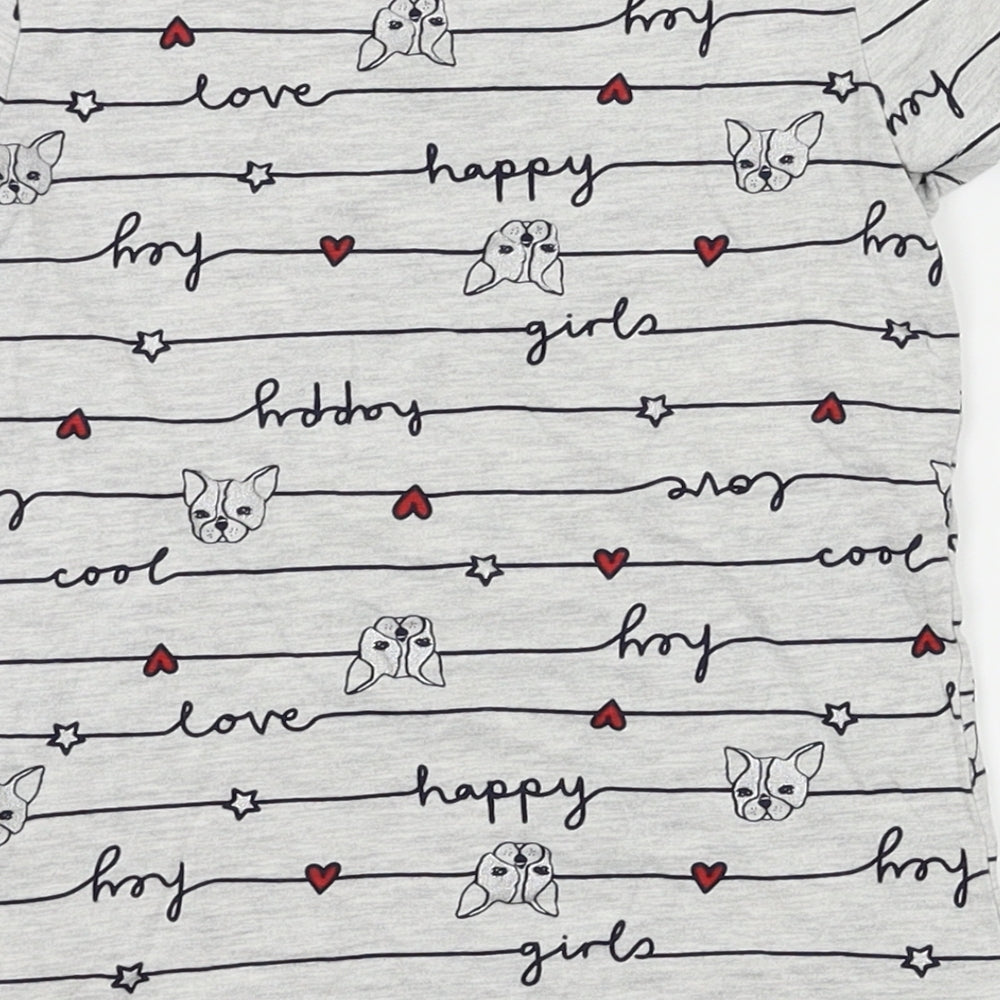 hey
love hey
happy
hey hey
girls
happy
love
cool cool
hey
love
happy
hey hey
girls